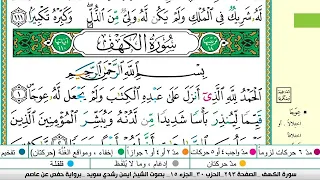 لَّهُۥ شَرِيكٌ فِى ٱلْمُلْكِ وَلَمْ يَكُن لَّهُۥ وَلِىٌّ مِّنَ ٱلذُّلِّ ۖ وَكَبِّرْهُ تَكْبِيرًۢا ١١١
سُورَةُ الْكَهْفِ
بِسْمِ ٱللَّهِ ٱلرَّحْمَٰنِ ٱلرَّحِيمِ
ٱلْحَمْدُ لِلَّهِ ٱلَّذِىٓ أَنزَلَ عَلَىٰ عَبْدِهِ ٱلْكِتَٰبَ وَلَمْ يَجْعَل لَّهُۥ عِوَجَا ۜ ١
قَيِّمًا لِّيُنذِرَ بَأْسًا شَدِيدًا مِّن لَّدُنْهُ وَيُبَشِّرَ ٱلْمُؤْمِنِينَ
مدّ ٦ حركات لزوماً مدّ ٢ أو ٤ أو ٦ جوازاً إخفاء، ومواقع الغُنَّة (حركتان) تفخيم
مدّ واجب ٤ أو ٥ حركات مدّ حركتان إدغام، وما لا يُلفَظ قلقلة
سورة الكهف. الصفحة ٢٩٣. الحزب ٣٠. الجزء ١٥. بصوت الشيخ أيمن رشدي سويد. برواية حفص عن عاصم